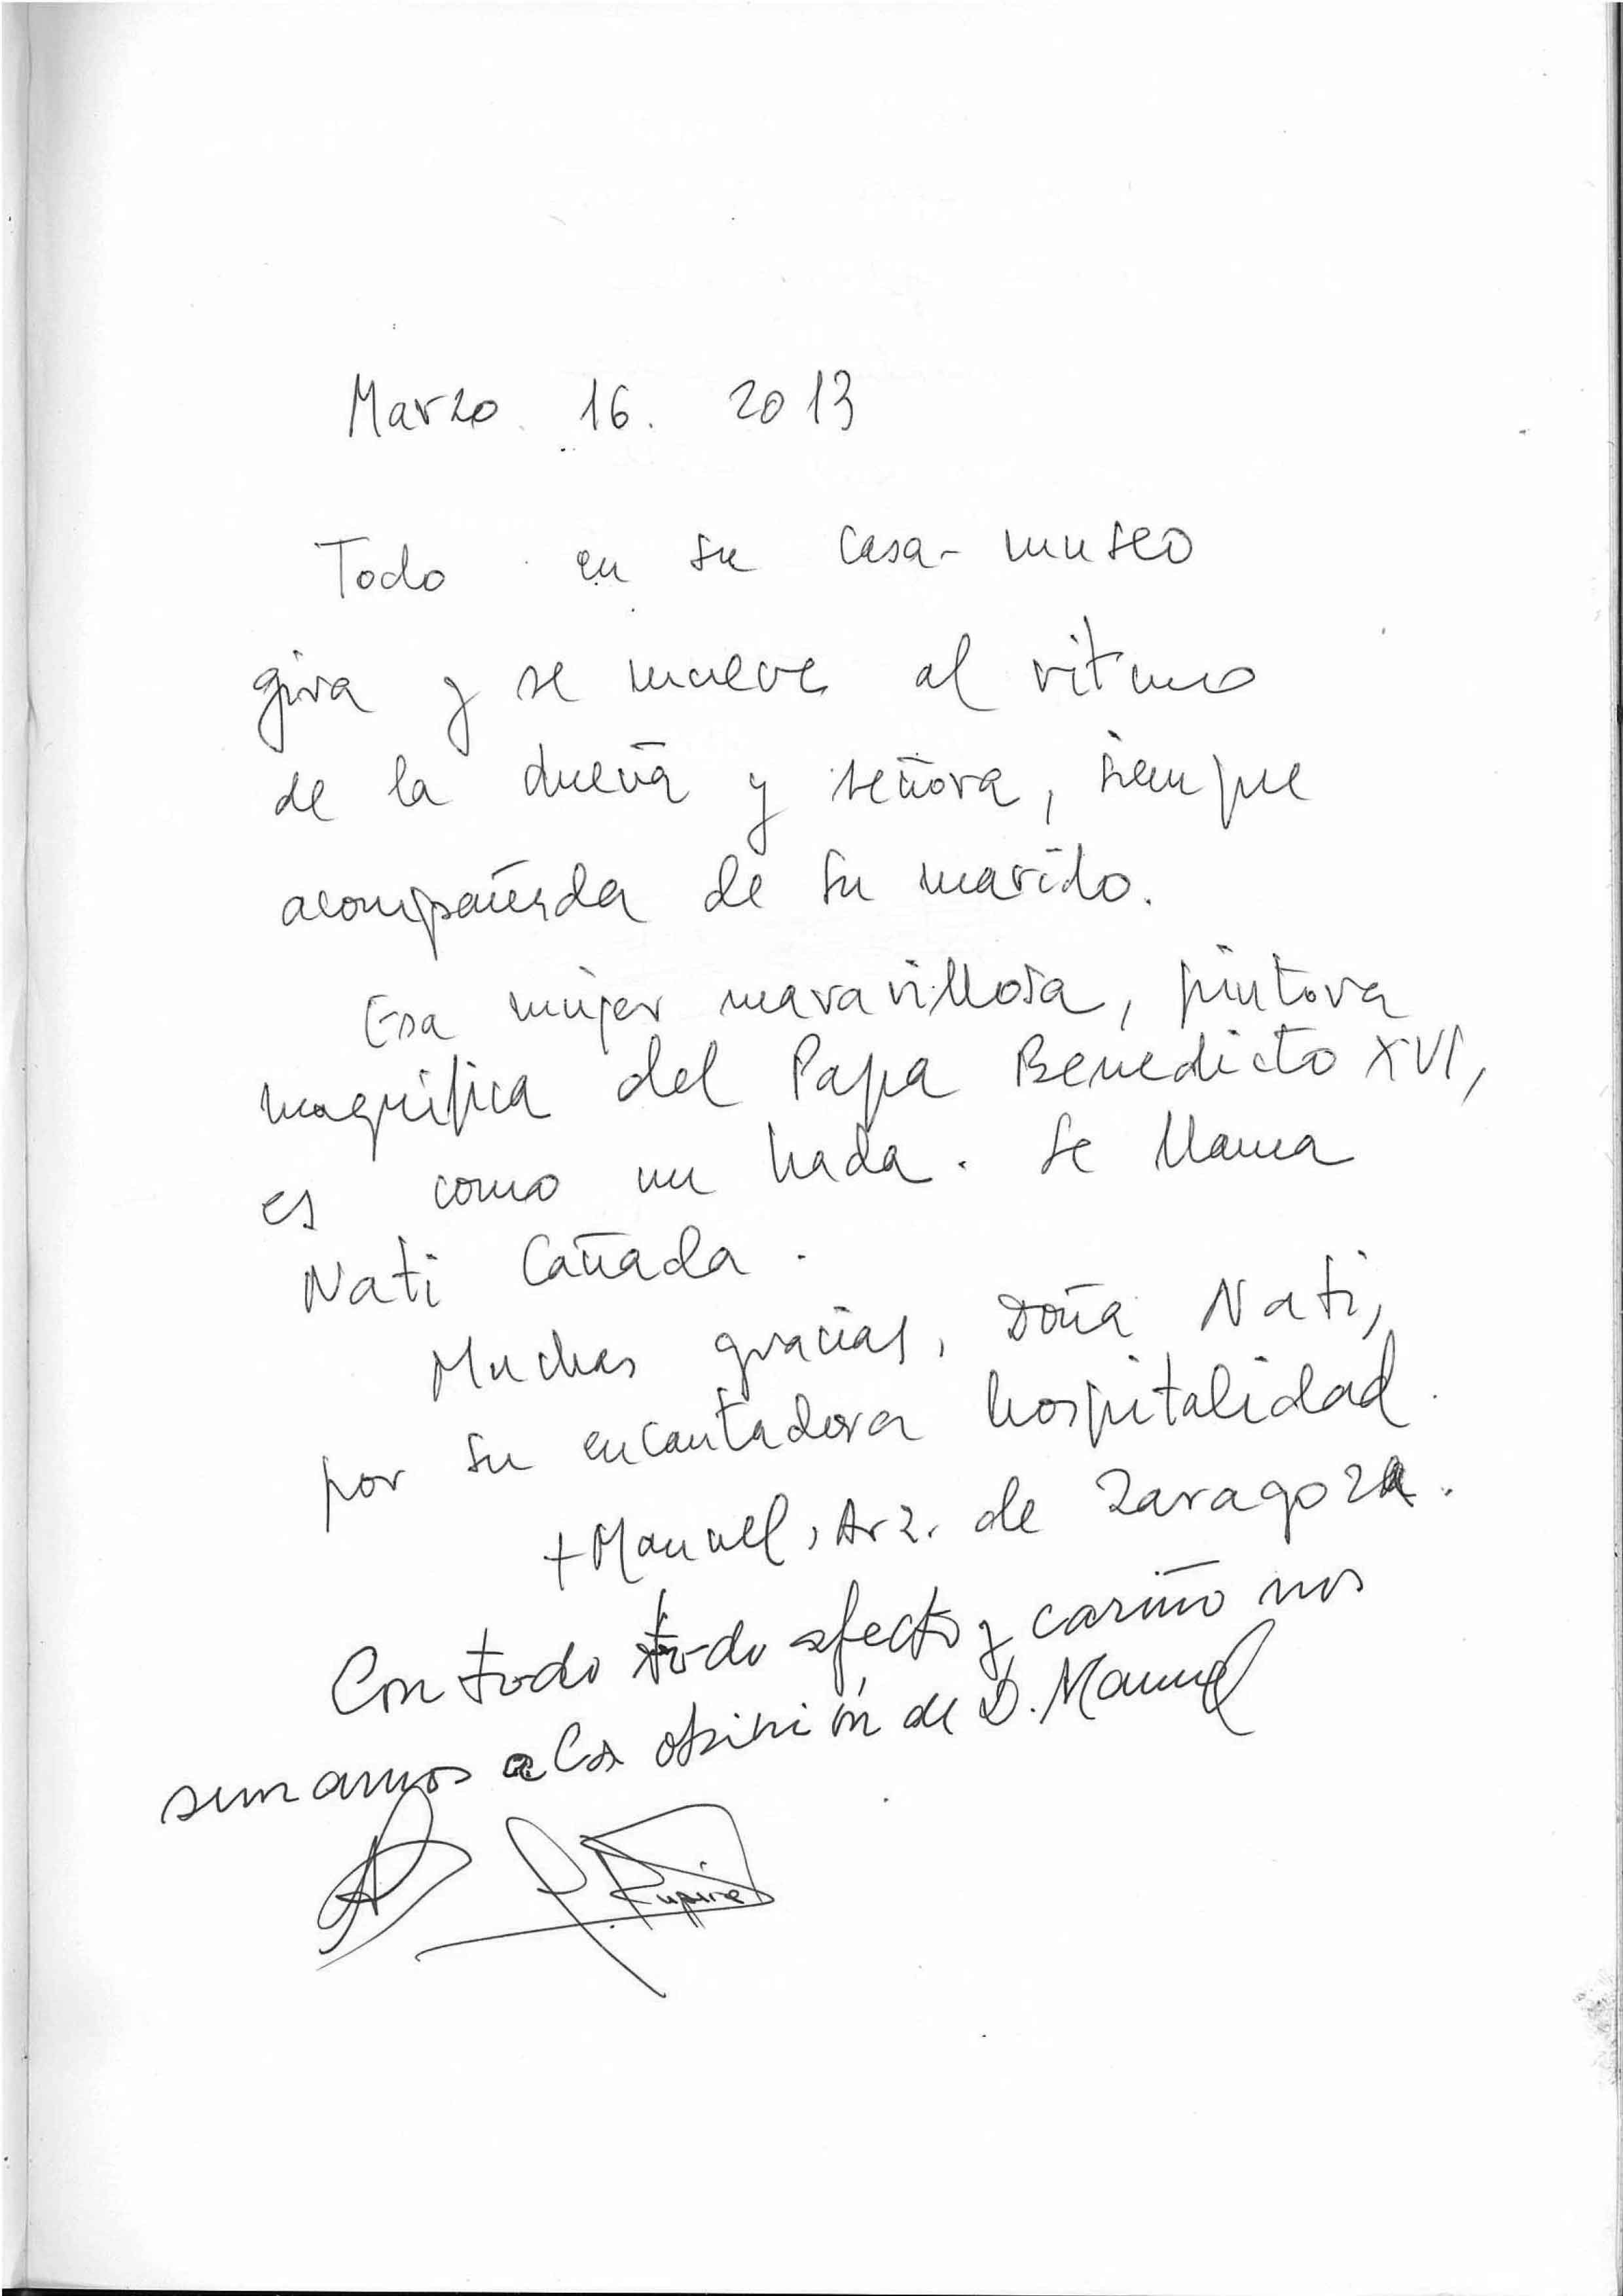 Marzo. 16. 2013
Todo en su casa-museo
gira y se mueve al ritmo
de la dueña y señora, siempre
acompañada de su marido.
Esa mujer maravillosa, pintora
magnífica del Papa Benedicto XVI,
es como un hada. Se llama
Nati Cañada.
Muchas gracias, Doña Nati,
por su encantadora hospitalidad.
+Manuel, Arz. de Zaragoza.
Con todo todo afecto y cariño nos
sumamos a la opinión de D. Manuel